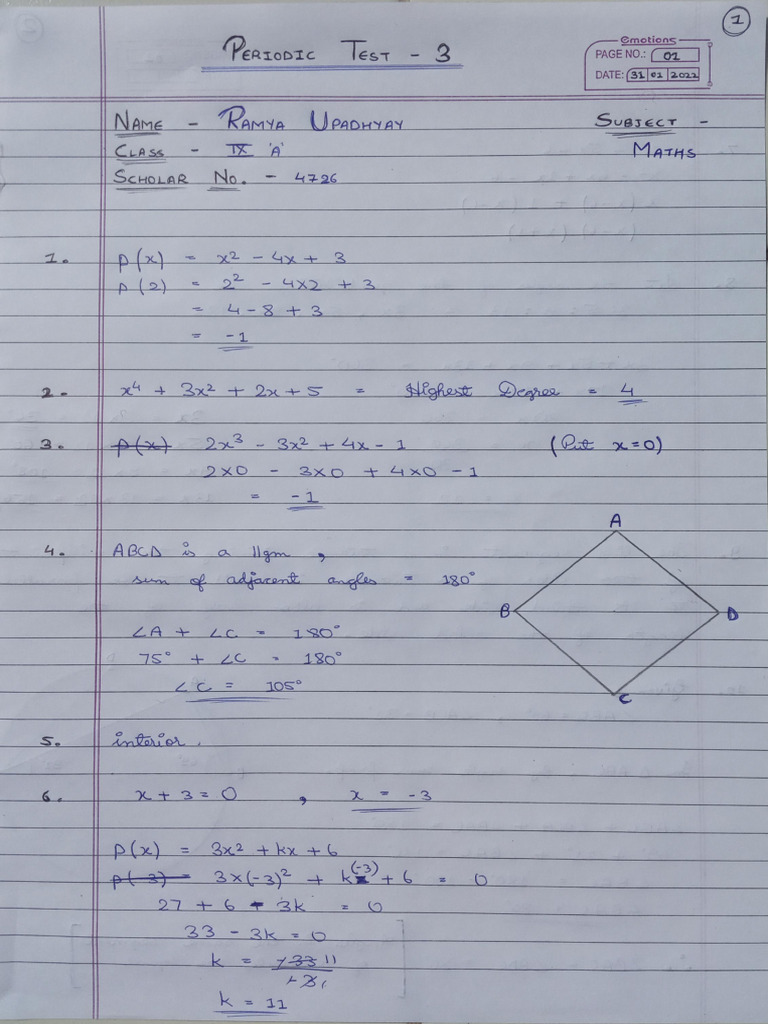 1
PERIODIC TEST - 3
emotions
PAGE NO.: 01
DATE: 31 01 2022
NAME - RAMYA UPADHYAY
SUBJECT -
CLASS - IX 'A'
MATHS
SCHOLAR NO. - 4726
1. p(x) = x² - 4x + 3
p(2) = 2² - 4x2 + 3
= 4 - 8 + 3
= -1
2. x⁴ + 3x² + 2x + 5 = Highest Degree = 4
3. p(x) 2x³ - 3x² + 4x - 1 (Put x=0)
2x0 - 3x0 + 4x0 - 1
= -1
4. ABCD is a ||gm,
sum of adjacent angles = 180°
∠A + ∠C = 180°
75° + ∠C = 180°
∠C = 105°
A
B
D
C
5. interior.
6. x + 3 = 0 , x = -3
p(x) = 3x² + kx + 6
p(-3) = 3x(-3)² + k(-3) + 6 = 0
27 + 6 - 3k = 0
33 - 3k = 0
k = -33 11
-3 1
k = 11